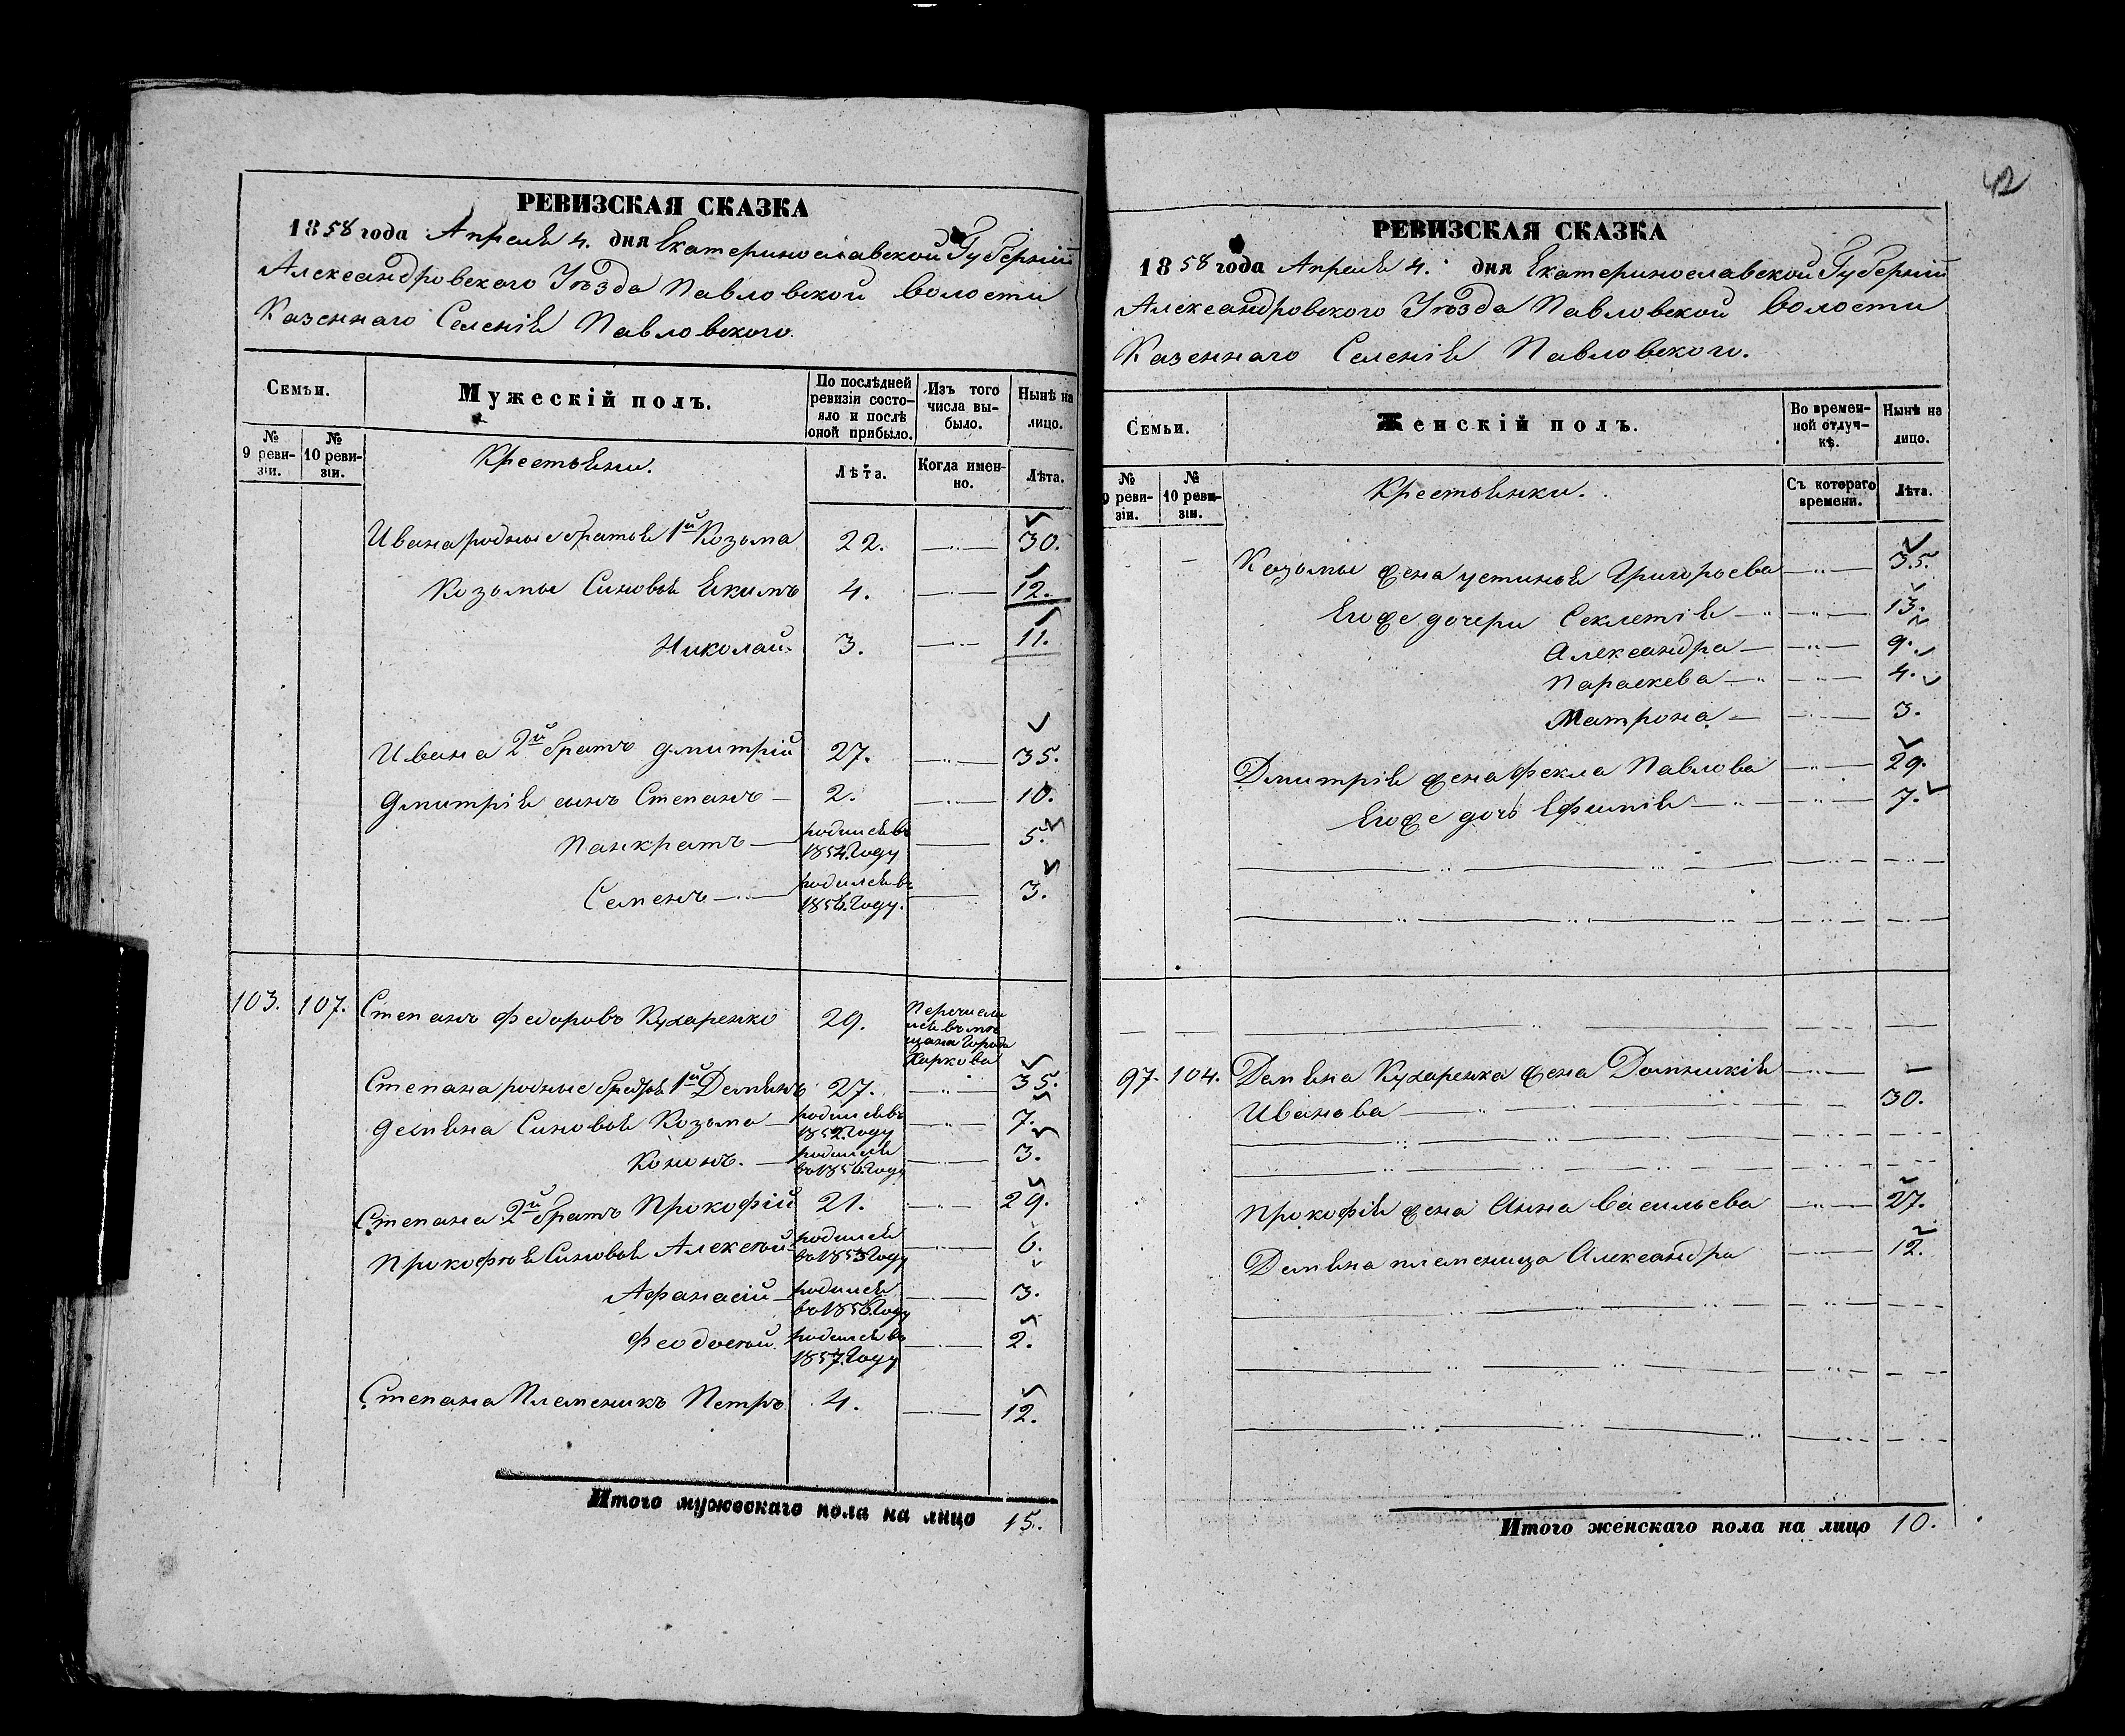 РЕВИЗСКАЯ СКАЗКА
1858 года Апреля 4. дня Екатеринославской Губерніи
Александровского Уѣзда Павловской волости
Казеннаго Селенія Павловского.
Семьи.
№ 9 ревизіи.
№ 10 ревизіи.
Мужескій полъ.
По послѣдней ревизіи состояло и послѣ оной прибыло.
Изъ того числа выбыло.
Нынѣ на лицо.
Крестьяни.
Лѣта.
Когда именно.
Лѣта.
Ивана родные братья 1й Козьма 22. 30.
Козьмы Сыновья Якимъ 4. 12.
Николай 3. 11.
Ивана 2й братъ Дмитрій 27. 35.
Дмитрія сынъ Степанъ 2. 10.
Панкратъ родился въ 1854. Году 5.
Семенъ родился въ 1856. Году. 3.
103. 107. Степанъ Федоровъ Кухаренко 29. Перечислился въ мещана Города Харкова
Степана родные братья 1й Демьянъ 27. 35.
Демьяна Сыновья Козьма родился въ 1852. Году 7.
Кононъ. родился во 1856. Году 3.
Степана 2й братъ Прокофій 21. 29.
Прокофія Сыновья Алексѣй родился во 1853 Году 6.
Афанасій родился во 1856. Году 3.
Феодосѣй родился въ 1857. Году 2.
Степана Племеникъ Петръ 4. 12.
Итого мужескаго пола на лицо 15.
42
РЕВИЗСКАЯ СКАЗКА
1858 года Апреля 4. дня Екатеринославской Губерніи
Александровского Уѣзда Павловской волости
Казеннаго Селенія Павловского.
Семьи.
№ 9 ревизіи.
№ 10 ревизіи.
Женскій полъ.
Во временной отлучкѣ.
Нынѣ на лицо.
Крестьянки.
Съ котораго времени.
Лѣта.
Козьмы жена Устинья Григорьева 35.
Его же дочери Секлетія 13.
Александра 9.
Параскева 4.
Матрона 3.
Дмитрія жена Фекла Павлова 29.
Его же дочь Ефимія 7.
97. 104. Демьяна Кухаренка жена Домникія
Иванова 30.
Прокофія жена Анна Васильева 27.
Демьяна племеница Александра 12.
Итого женскаго пола на лицо 10.